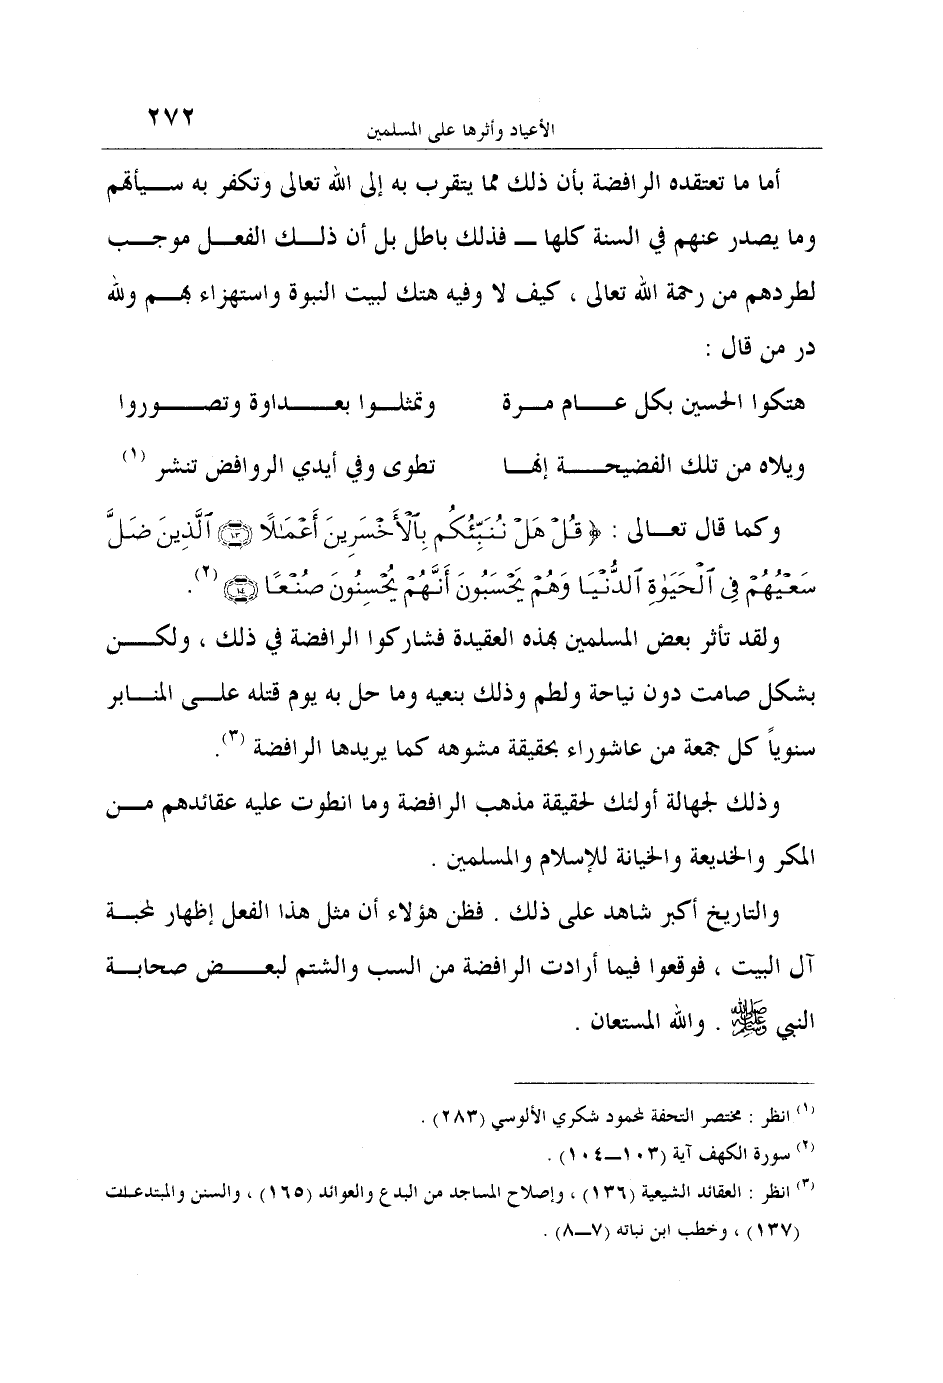 ٢٧٢
الأعياد وأثرها على المسلمين
أما ما تعتقده الرافضة بأن ذلك مما يتقرب به إلى الله تعالى وتكفر به سيآتهم
وما يصدر عنهم في السنة كلها ــ فذلك باطل بل أن ذلك الفعل موجب
لطردهم من رحمة الله تعالى ، كيف لا وفيه هتك لبيت النبوة واستهزاء بهم ولله
در من قال :
هتكوا الحسين بكل عام مرة وتمثلوا بعداوة وتصوروا
ويلاه من تلك الفضيحة إنها تطوى وفي أيدي الروافض تنشر (١)
وكما قال تعالى : ﴿ قُلْ هَلْ نُنَبِّئُكُم بِٱلْأَخْسَرِينَ أَعْمَٰلًا ۝١٠٣ ٱلَّذِينَ ضَلَّ
سَعْيُهُمْ فِى ٱلْحَيَوٰةِ ٱلدُّنْيَا وَهُمْ يَحْسَبُونَ أَنَّهُمْ يُحْسِنُونَ صُنْعًا ۝١٠٤ (٢).
ولقد تأثر بعض المسلمين بهذه العقيدة فشاركوا الرافضة في ذلك ، ولكن
بشكل صامت دون نياحة ولطم وذلك بنعيه وما حل به يوم قتله على المنابر
سنوياً كل جمعة من عاشوراء بحقيقة مشوهه كما يريدها الرافضة (٣).
وذلك لجهالة أولئك لحقيقة مذهب الرافضة وما انطوت عليه عقائدهم من
المكر والخديعة والخيانة للإسلام والمسلمين .
والتاريخ أكبر شاهد على ذلك . فظن هؤلاء أن مثل هذا الفعل إظهار لمحبة
آل البيت ، فوقعوا فيما أرادت الرافضة من السب والشتم لبعض صحابة
النبي ﷺ . والله المستعان .
(١) انظر : مختصر التحفة لمحمود شكري الألوسي (٢٨٣) .
(٢) سورة الكهف آية (١٠٣ــ١٠٤) .
(٣) انظر : العقائد الشيعية (١٣٦) ، وإصلاح المساجد من البدع والعوائد (١٦٥) ، والسنن والمبتدعات
(١٣٧) ، وخطب ابن نباته (٧ــ٨) .